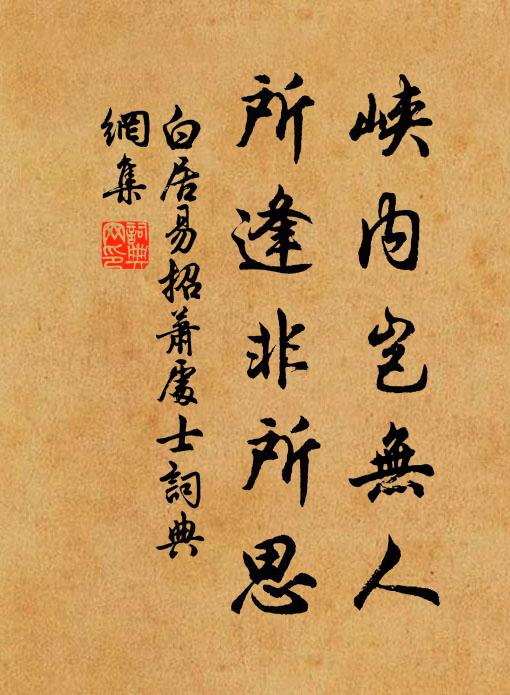 峽内岂無人
所逢非所思
白居易招蕭處士詞典
網集
詞典
网印